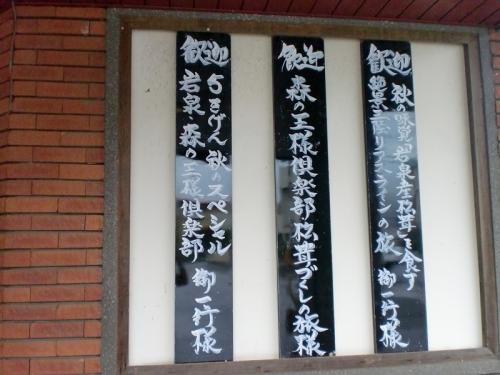 歓迎
秋の味覚「岩泉産松茸」を食す
絶景三陸リアスラインの旅
御一行様
歓迎
森の王様倶楽部・松茸づくしの旅
御一行様
歓迎
らきげん秋のスペシャル
岩泉・森の王様倶楽部
御一行様